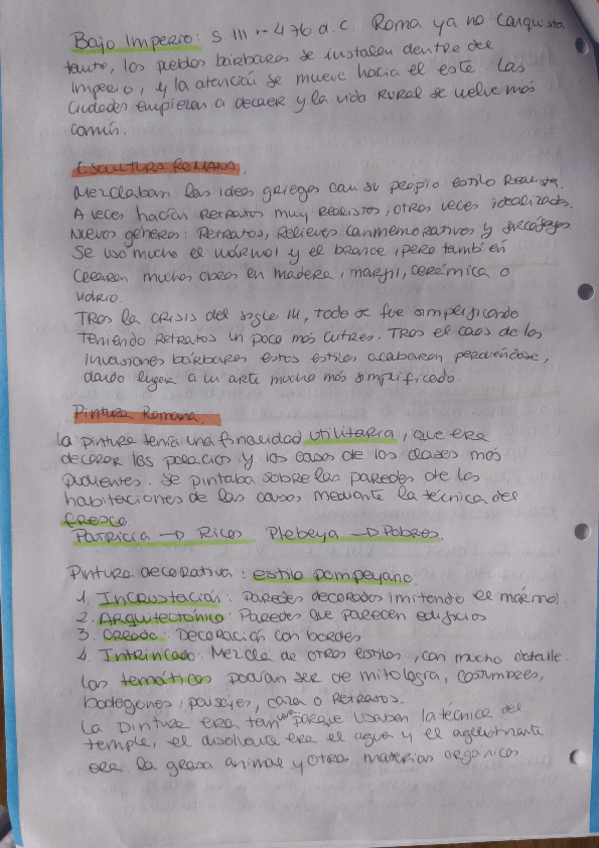 Bajo Imperio: S. III - 476 d.C. Roma ya no conquista
tanto, los pueblos bárbaros se instalan dentro del
Imperio, y la atención se mueve hacia el este. Las
ciudades empiezan a decaer y la vida RURAL se vuelve más
común.
ESCULTURA ROMANA.
Mezclaban las ideas griegas con su propio estilo Realista.
A veces hacían RETRATOS muy Realistas, otras veces idealizados.
Nuevos géneros: RETRATOS, Relieves conmemorativos y sarcófagos.
Se usó mucho el mármol y el bronce, pero también
crearon muchas obras en madera, marfil, cerámica o
vidrio.
TRAS la CRISIS del siglo III, todo se fue simplificando
teniendo RETRATOS un poco más cutres. TRAS el caos de las
invasiones bárbaras estos estilos acabaron perdiéndose,
dando lugar a un arte mucho más simplificado.
Pintura Romana.
La pintura tenía una finalidad utilitaria, que era
decorar los palacios y las casas de las clases más
pudientes. Se pintaba sobre las paredes de las
habitaciones de las casas mediante la técnica del
fresco.
Patricia → Ricos Plebeya → Pobres.
Pintura decorativa: estilo pompeyano.
1. Incrustación: Paredes decoradas imitando el mármol.
2. Arquitectónico: Paredes que parecen edificios
3. Orlado: Decoración con bordes
4. Intrincado: Mezcla de otros estilos, con mucho detalle.
Las temáticas podían ser de mitología, costumbres,
bodegones, paisajes, caza o RETRATOS.
La Pintura era porque usaban la técnica del
temple, el disolvente era el agua y el aglutinante
era la grasa animal y otras materias orgánicas